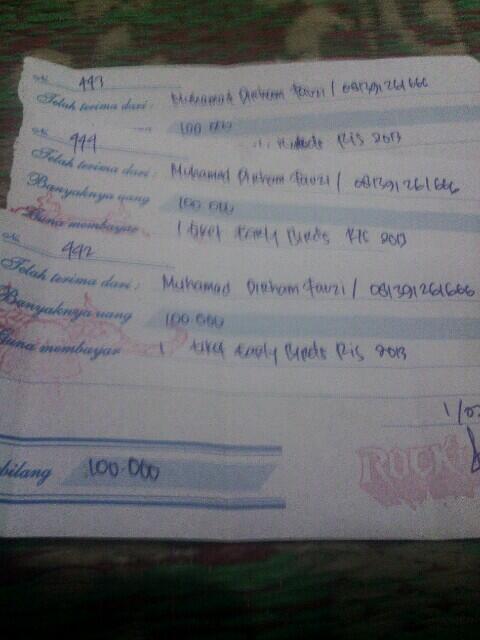 No. 443
Telah terima dari : Muhamad Dirham Fauzi / 081391261666
100.000
Birds RIS 2013
No. 444
Telah terima dari : Muhamad Dirham Fauzi / 081391261666
Banyaknya uang 100.000
Guna membayar 1 tiket Early Birds RIS 2013
No. 442
Telah terima dari : Muhamad Dirham Fauzi / 081391261666
Banyaknya uang 100.000
Guna membayar 1 tiket Early Birds RIS 2013
1/02
bilang 100.000
ROCK